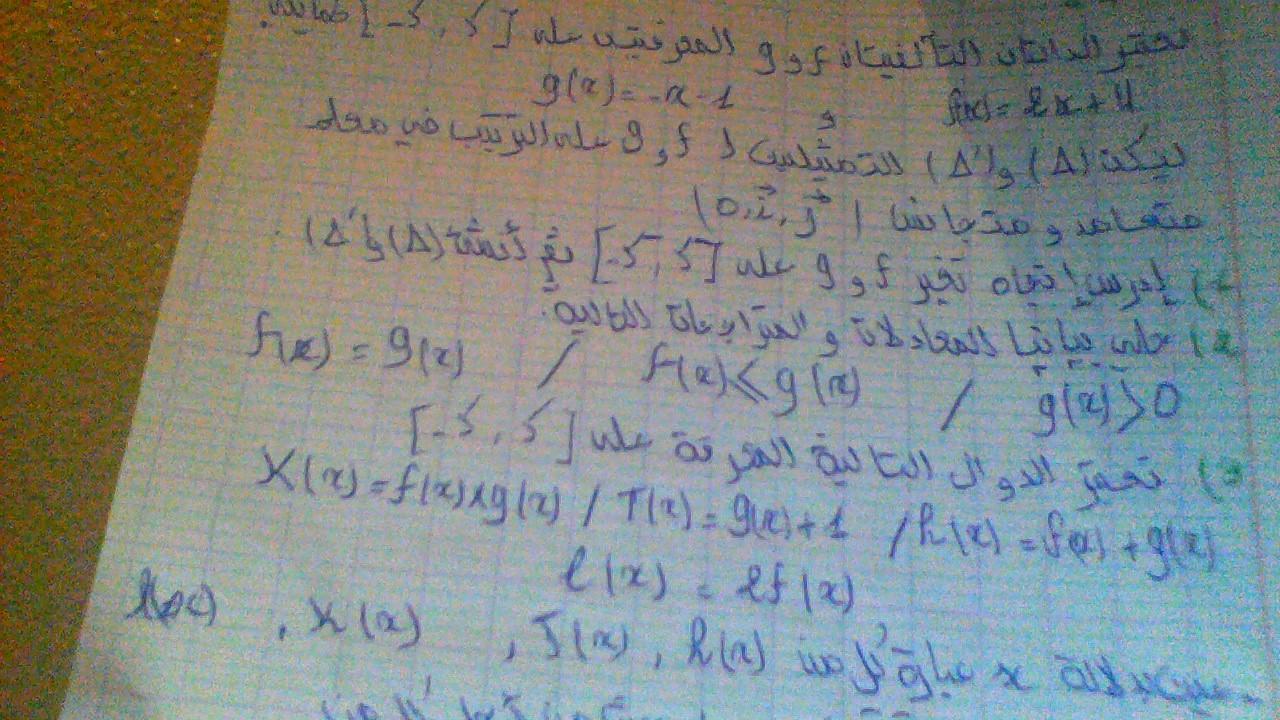 نعتبر الدالتان التآلفيتان f و g المعرفتين على [-5, 5] كمايلي.
f(x) = 2x+4 و g(x) = -x-1
ليكن (Δ) و (Δ') التمثيلين لـ f و g على الترتيب في معلم
متعامد و متجانس (o, i, j)
1) إدرس إتجاه تغير f و g على [-5, 5] ثم أنشئ (Δ) و (Δ').
2) حل بيانيا المعادلات و المتراجحات التالية.
f(x) = g(x) / f(x) ≤ g(x) / g(x) > 0
3) نعتبر الدوال التالية المعرفة على [-5, 5]
K(x) = f(x)×g(x) / T(x) = g(x)+1 / h(x) = f(x)+g(x)
l(x) = 2f(x)
بدلالة x عبارة كل من h(x) , T(x) , K(x) , l(x)